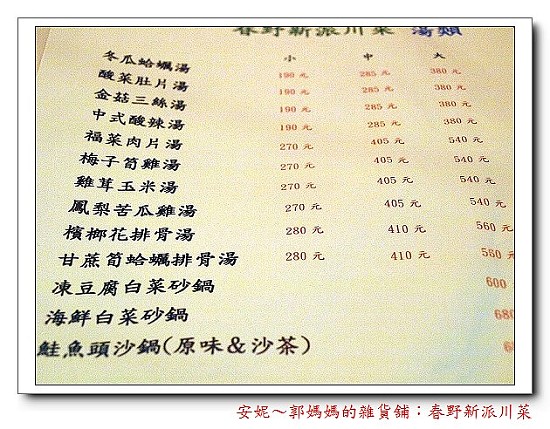 春野新派川菜 湯類
小 中 大
冬瓜蛤蠣湯 190 元 285 元 380 元
酸菜肚片湯 190 元 285 元 380 元
金菇三絲湯 190 元 285 元 380 元
中式酸辣湯 190 元 285 元 380 元
福菜肉片湯 270 元 405 元 540 元
梅子筍雞湯 270 元 405 元 540 元
雞茸玉米湯 270 元 405 元 540 元
鳳梨苦瓜雞湯 270 元 405 元 540 元
檳榔花排骨湯 280 元 410 元 560 元
甘蔗筍蛤蠣排骨湯 280 元 410 元 580 元
凍豆腐白菜砂鍋 600
海鮮白菜砂鍋 680
鮭魚頭沙鍋(原味&沙茶)
安妮~郭媽媽的雜貨舖:春野新派川菜